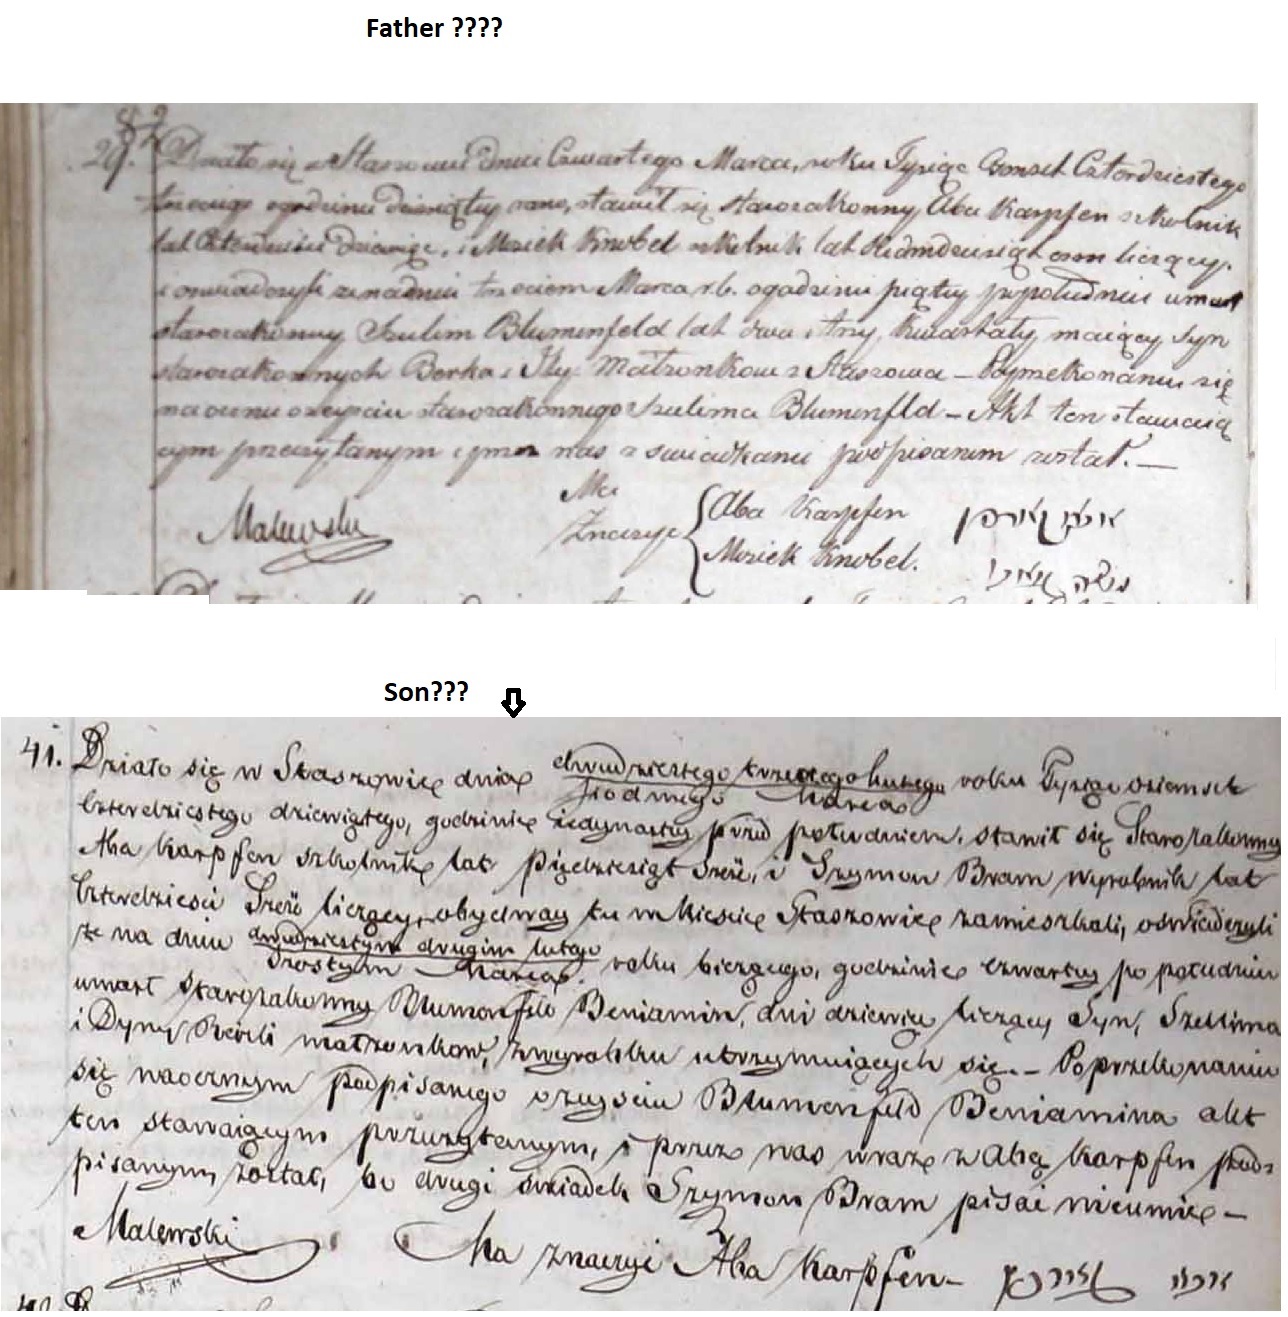 Father ????
82
29. Działo się w Staszowie dnia Czwartego Marca, roku Tysiąc Czterdziestego
trzeciego ogodzinie dziesiątey rano, stawił się starozakonny Aba Karpfen szkolnik
lat Czterdzieści dziewięć, i Mosiek Knobel szkolnik lat osm liczący.
i oswiadczyli że na dniu trzeciem Marca r.b. ogodzinie piątey popołudniu umarł
starozakonny Szulim Blumenfeld lat dwa i trzy kwartały, maiący syn
starozakonnych Berka i Małżonków z Staszowa — Poprzekonaniu się
naocznie ozeyściu starozakonnego Szulima Blumenfld — Akt ten stawaią
cym przeczytanym i przez nas z swiadkami podpisanem został. —
Malewski
Znaczy
Aba Karpfen
Mosiek Knobel.
Son???
41. Działo się w Staszowie dnia dwudziestego trzeciego lutego roku Tysiąc osiemset
siodmego Marca
Czterdziestego dziewiątego, godzinie iedynastey przed południem, stawił się Starozakonny
Aba Karpfen szkolnik lat pięćdziesiąt sześć, i Szymon Bram wyrobnik lat
Czterdzieści sześć liczący, obydway tu w Mieście Staszowie zamieszkali, oświadczyli
że na dniu dwudziestym drugim lutego roku bieżącego, godzinie czwartey po południu
szostym Marca
umarł starozakonny Blumenfeld Beniamin, dni dziewięć liczący Syn, Szelima
i Dyny małżonków, z wyrobku utrzymuiących się. — Poprzekonaniu
się naocznym podpisanego o zeyściu Blumenfeld Beniamina akt
ten stawaiącym przeczytanym, i przez nas wraz z Abą Karpfen pod=
pisanym został, bo drugi świadek Szymon Bram pisać nieumie —
Malewski
znaczy Aba Karpfen —